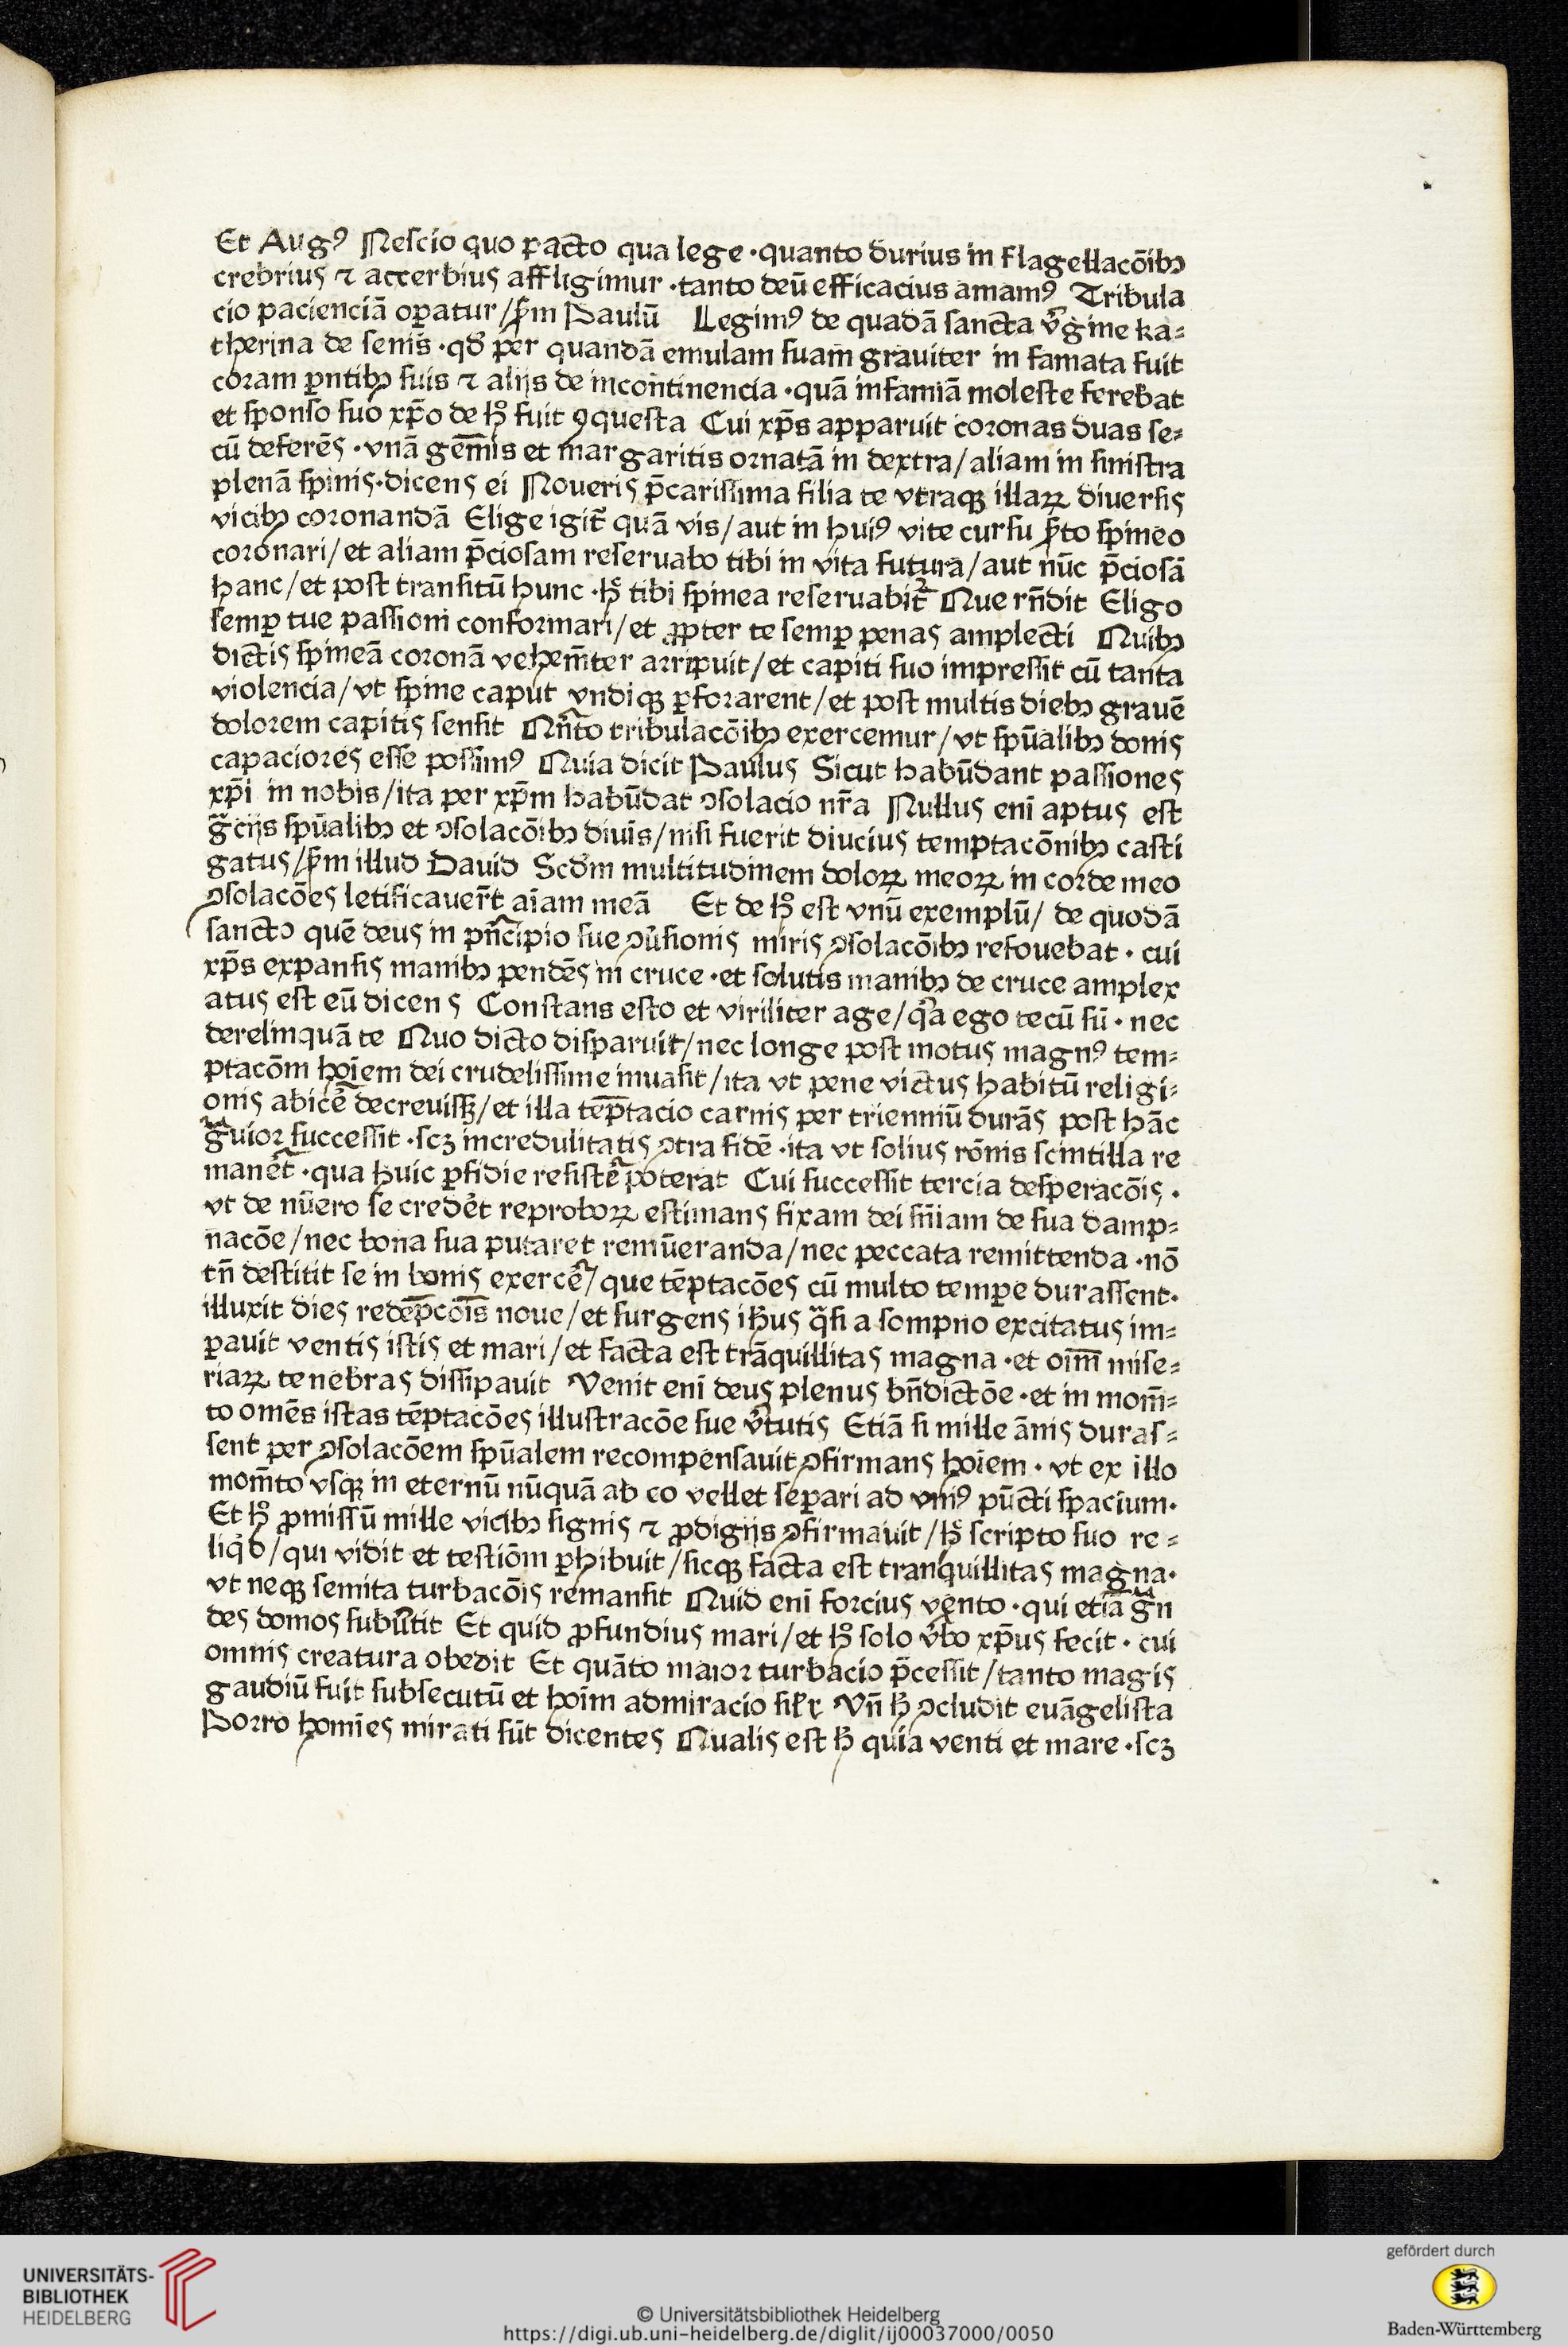 Et Augꝰ Neſcio quo pacto qua lege ·quanto durius in flagellacōibꝫ
crebrius ⁊ accerbius affligimur ·tanto deū efficacius amamꝰ Tribula
cio pacienciā oꝑatur/ẜm Paulū Legimꝰ de quadā ſancta v̓gine ka⸗
therina de ſenis̄ ·qd̓ per quandā emulam ſuam grauiter in famata fuit
coram ꝑntibꝫ ſuis ⁊ alijs de incontinencia ·quā infamiā moleſte ferebat
et ſponſo ſuo xp̄o de hͦ fuit ꝯqueſta Cui xp̄s apparuit coronas duas ſe⸗
cū deferēs ·vnā gem̄is et margaritis ornatā in dextra/aliam in ſiniſtra
plenā ſpinis·dicens ei Noueris p̄cariſſima filia te vtraqꝫ illaꝝ diuerſis
vicibꝫ coronandā Elige igit̄ quā vis/aut in huiꝰ vite curſu ẜto ſpineo
coronari/et aliam p̄cioſam reſeruabo tibi in vita futura/aut nūc p̄cioſā
hanc/et poſt tranſitū hunc ·hͨ tibi ſpinea reſeruabit᷑ Que rn̄dit Eligo
ſemꝑ tue paſſioni conformari/et ꝓpter te ſemꝑ penas amplecti Quibꝫ
dictis ſpineā coronā vehem̄ter arripuit/et capiti ſuo impreſſit cū tanta
violencia/vt ſpine caput vndiqꝫ ꝑforarent/et poſt multis diebꝫ grauē
dolorem capitis ſenſit Qn̄to tribulacōibꝫ exercemur/vt ſpūalibꝫ donis
capaciores eſſe poſſimꝰ Quia dicit Paulus Sicut habūdant paſſiones
xp̄i in nobis/ita per xp̄m habūdat ↄſolacio nr̄a Nullus enī aptus eſt
gͣcijs ſpūalibꝫ et ↄſolacōibꝫ diuīs/niſi fuerit diucius temptacōnibꝫ caſti
gatus/ẜm illud Dauid Scd̓m multitudinem doloꝝ meoꝝ in corde meo
ↄſolacōes letificauer̄t aīam meā Et de hͦ eſt vnū exemplū/ de quodā
ſancto quē deus in pn̄cipio ſue ↄu̓ſionis miris ↄſolacōibꝫ refouebat · cui
xp̄s expanſis manibꝫ pendēs in cruce ·et ſolutis manibꝫ de cruce amplex
atus eſt eū dicens Conſtans eſto et viriliter age/qͥa ego tecū ſū · nec
derelinquā te Quo dicto diſparuit/nec longe poſt motus magnꝰ tem⸗
ptacōm hoīem dei crudeliſſime inuaſit/ita vt pene victus habitū religi⸗
onis abicē᷑ decreuiſſꝫ/et illa tēp̄tacio carnis per trienniū durās poſt hāc
gͣuior ſucceſſit ·ſcꝫ incredulitatis ↄtra fidē ·ita vt ſolius rōnis ſcintilla re
manē᷑t ·qua huic ꝑfidie reſiſtē᷑ poterat Cui ſucceſſit tercia deſperacōis ·
vt de nūero ſe crede̓t reproboꝝ eſtimans fixam dei ſn̄iam de ſua damp⸗
nacōe/nec bona ſua putaret remūeranda/nec peccata remittenda ·nō
tn̄ deſtitit ſe in bonis exercē᷑/que tēptacōes cū multo temꝑe duraſſent·
illuxit dies redēp̄cōis noue/et ſurgens ih̄us qͣſi a ſompno excitatus im⸗
ꝑauit ventis iſtis et mari/et facta eſt trāquillitas magna ·et oīm̄ miſe⸗
riaꝝ tenebras diſſipauit Venit enī deus plenus bn̄dictōe ·et in mom̄⸗
to omēs iſtas tēptacōes illuſtracōe ſue v̓tutis Etiā ſi mille ānis duraſ⸗
ſent per ↄſolacōem ſpūalem recompenſauit ↄfirmans hoīem · vt ex illo
mom̄to vſqꝫ in eternū nūquā ab eo vellet ſeꝑari ad vniꝰ pūcti ſpacium·
Et hͦ ꝓmiſſū mille vicibꝫ ſignis ⁊ ꝓdigijs ↄfirmauit/hͨ ſcripto ſuo re⸗
liqͥd/qui vidit et teſtiōm ꝑhibuit/ſicqꝫ facta eſt tranquillitas magna·
vt neqꝫ ſemita turbacōis remanſit Quid enī forcius vento ·qui etiā gͣn
des domos ſubu̓tit Et quid ꝓfundius mari/et hͦ ſolo v̓bo xp̄us fecit · cui
omnis creatura obedit Et quāto maior turbacio p̄ceſſit/tanto magis
gaudiū fuit ſubſecutū et hoīm admiracio ſiłr Vn̄ hͨ ↄcludit euāgeliſta
Porro homīes mirati ſūt dicentes Qualis eſt hͨ quia venti et mare ·ſcꝫ
UNIVERSITÄTS-
BIBLIOTHEK
HEIDELBERG
© Universitätsbibliothek Heidelberg
https://digi.ub.uni-heidelberg.de/diglit/ij00037000/0050
gefördert durch
Baden-Württemberg